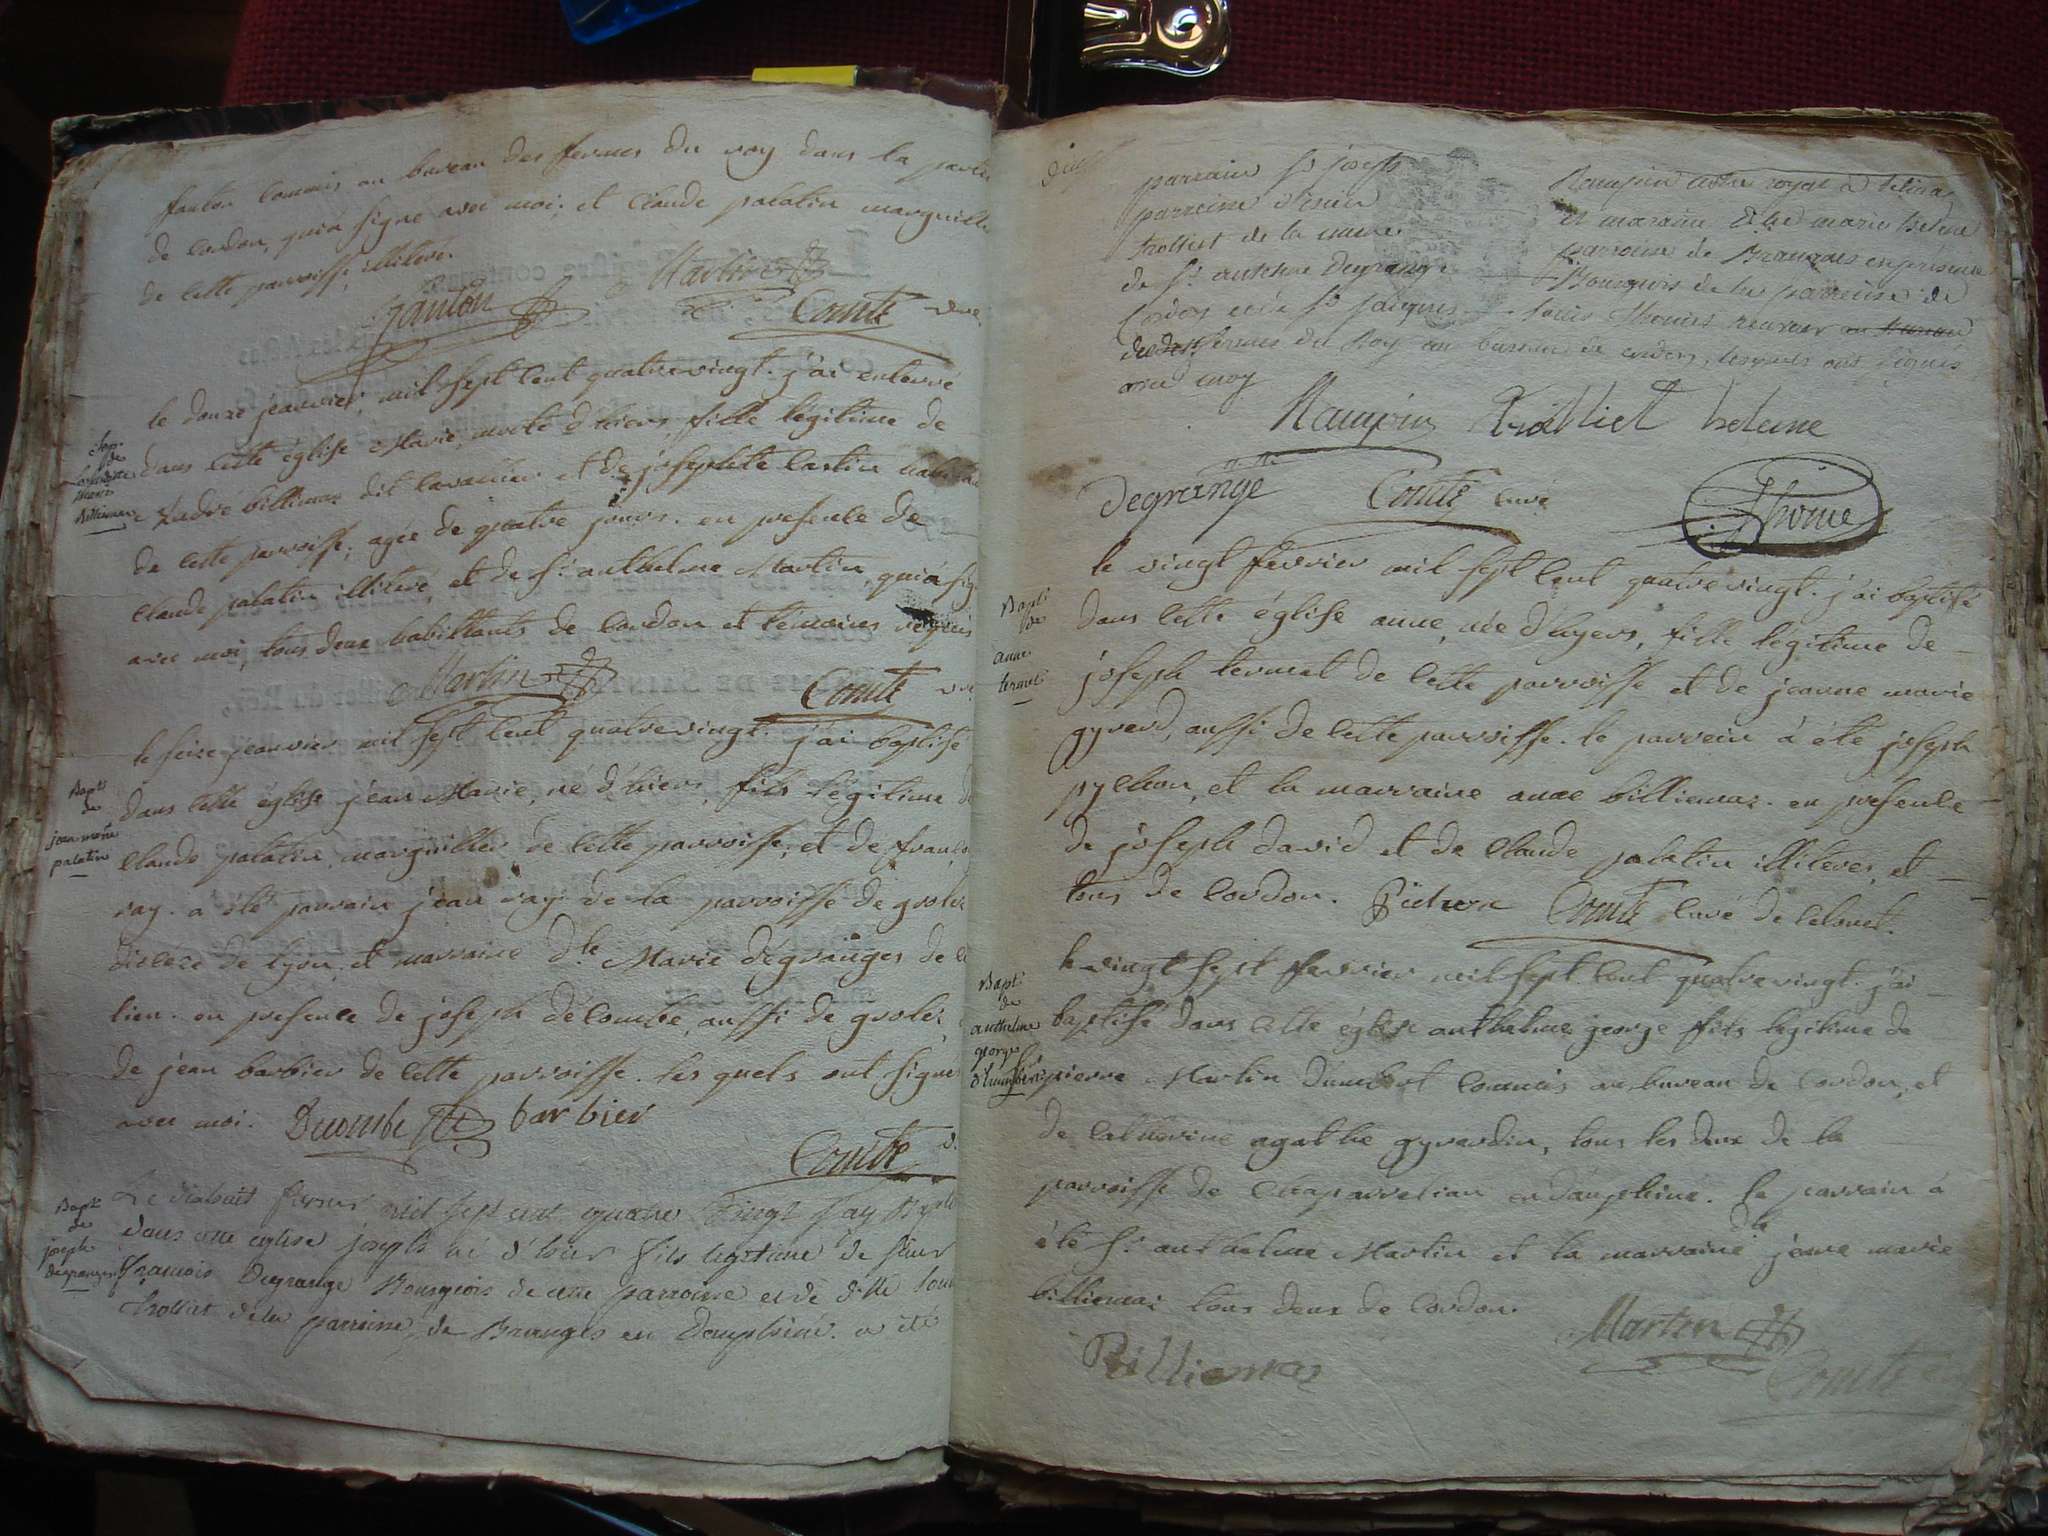 fanton commis au bureau des fermes du roy dans la
de cordon, qui a signé avec moi; et Claude palatin marguillier
de cette parroisse, illiteré.
fanton Martin
Comte
le douze jeanvier mil sept cent quatre vingt. j'ai enterré
Sep.
de
marie
Billiemaz
dans cette église Marie, morte d'hier, fille légitime de
billiemaz dit et de josephte
de cette parroisse; agée de quatre jours. en presence de
Claude palatin illiteré, et de Sr. anthelme Martin, qui a
avec moi, tous deux habittants de cordon et témoins requis
Martin Comte
le seize jeanvier mil sept cent quatre vingt. j'ai baptisé
Bapt.
de
jean marie
palatin
dans cette église jean Marie, né d'hier, fils légitime
Claude palatin, marguillier de cette parroisse, et de
ray. a été parrain jean ray de la parroisse de
diocèse de lyon, et marraine dlle Marie dégranges de
lieu. en presence de joseph décombe, aussi de
de jean barbier de cette parroisse. les quels ont
avec moi. Decombe barbier
Comte
Bapt
de
joseph
degranges
Le dishuit fevrier mil sept cent quatre vingt j'ay
dans cette eglise joseph né d'hier fils legitime de sieur
francois Degrange Bourgeois de cette parroisse et de dlle
trolliet de la parroisse de Branges en Dauphiné. a été
parrain Sr joseph
trolliet de la meme
de Sr. antelme Degrange
Cordon et de Sr jacques
des fermes du Roy au bureau de cordon, lesquels ont signés
avec moy
Maupin notre royal a
et maraine dlle marie helene
parroisse de Brangues en presence
Bourgeois de la parroisse de
Thomé receveur
Maupin Trolliet helene
Degrange Comte curé Thomé
Bapt.
de
anne
termet
le vingt fevrier mil sept cent quatre vingt. j'ai baptisé
dans cette église anne, née d'hyers, fille legitime de
joseph termet de cette parroisse et de jeanne marie
gyrerd, aussi de cette parroisse. le parrein à été joseph
pychon, et la marraine anne billiemaz. en presence
de joseph david et de Claude palatin illiteres, et
tous de cordon. Comte curé
Bapt.
de
anthelme
george
d'humbert
le vingt sept fevrier mil sept cent quatre vingt. j'ai
baptisé dans cette église anthelme george fils legitime de
pierre Martin dumbert commis au bureau de cordon, et
de catherine agathe gyrardin, tous les deux de la
parroisse de chaparrelian en dauphiné. le parrain à
été Sr. anthelme Martin et la marraine dlle jeane marie
billiemaz tous deux de cordon.
Martin
Billiemaz
Comte